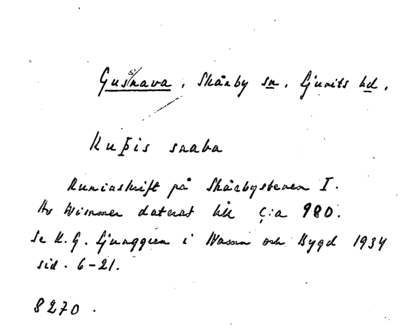 Gusnava, Skårby sn. Ljunits hd.
Kuþis snaba
Runinskrift på Skårbystenen I.
Av Wimmer daterat till c:a 980.
Se K. G. Ljunggren i Namn och Bygd 1934
sid. 6-21.
8270.